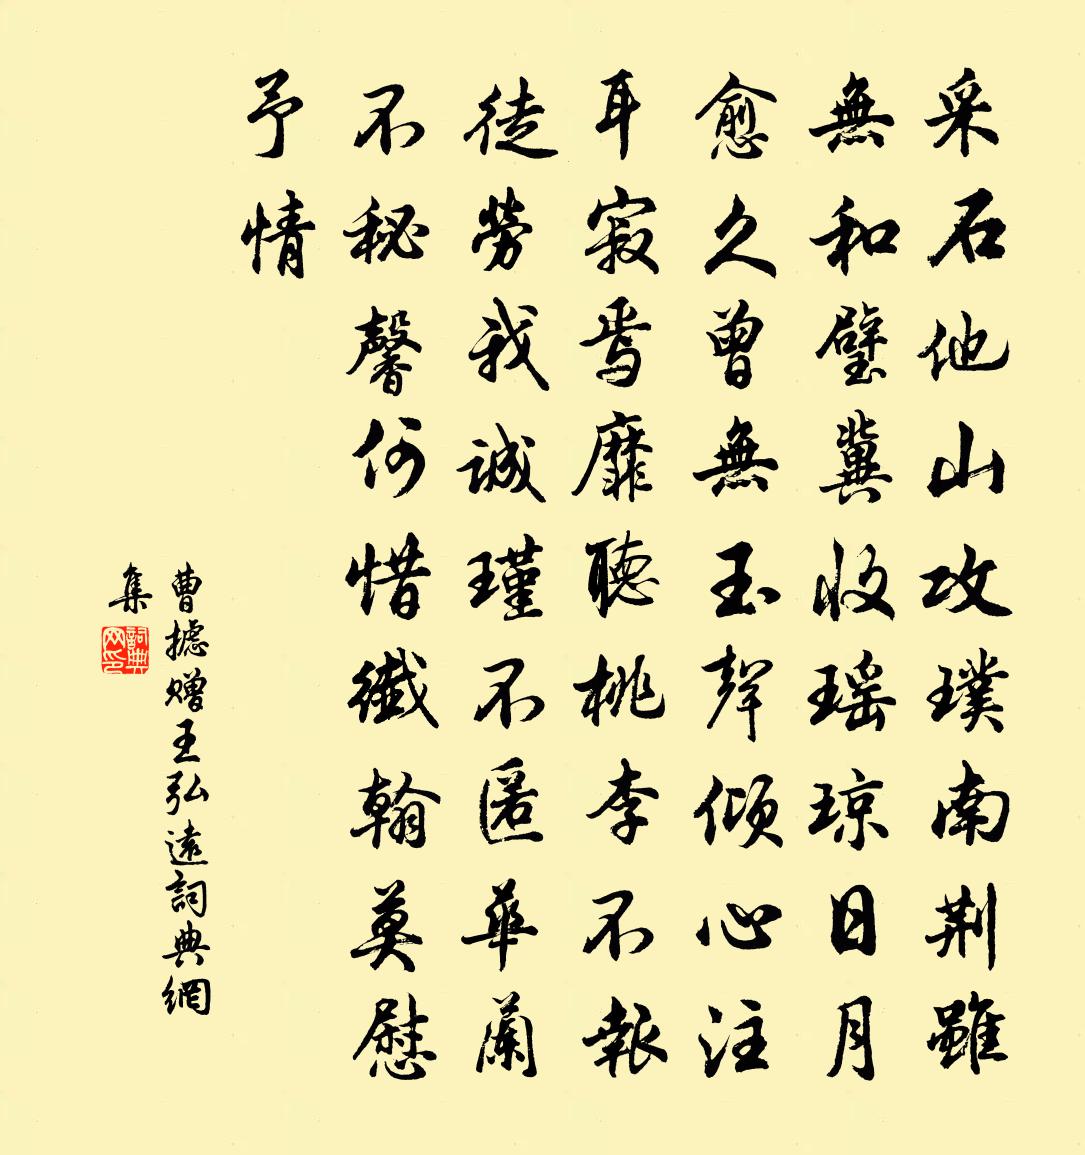 采石他山攻璞南荆雖
無和璧冀收瑶琼日月
愈久曾無玉聲傾心注
耳寂焉靡聽桃李不報
徒勞我誠瑾不匿華蘭
不秘馨何惜纖翰莫慰
予情
曹摅赠王弘遠詞典網
集
詞典网印